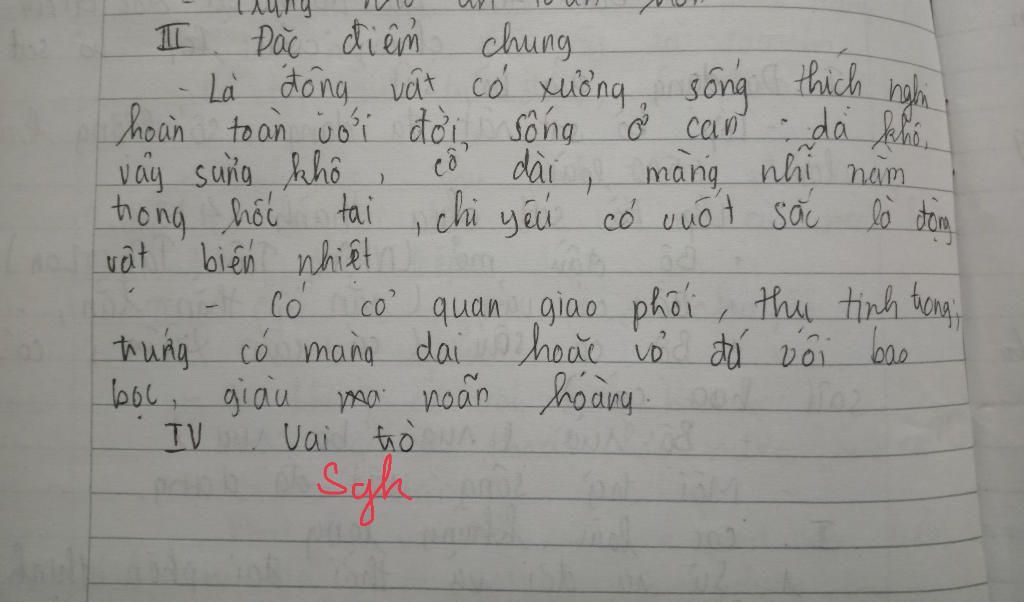 III. Đặc điểm chung
- Là động vật có xương sống thích nghi
hoàn toàn với đời sống ở cạn: da khô,
vảy sừng khô, cổ dài, màng nhĩ nằm
trong hốc tai, chi yếu có vuốt sắc là động
vật biến nhiệt
- Có cơ quan giao phối, thụ tinh trong,
trứng có màng dai hoặc vỏ đá vôi bao
bọc, giàu noãn hoàng.
IV. Vai trò
Sgk